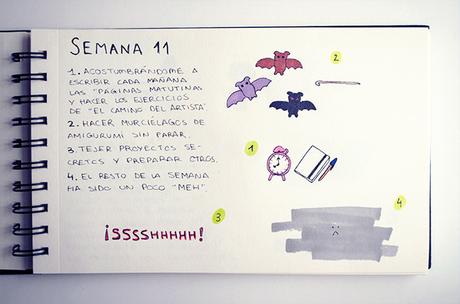 SEMANA 11
1. ACOSTUMBRÁNDOME A
ESCRIBIR CADA MAÑANA
LAS "PÁGINAS MATUTINAS
Y HACER LOS EJERCICIOS
DE "EL CAMINO DEL ARTISTA".
2. HACER MURCIÉLAGOS DE
AMIGURUMI SIN PARAR.
3. TEJER PROYECTOS SE-
CRETOS Y PREPARAR OTROS.
4. EL RESTO DE LA SEMANA
HA SIDO UN POCO "MEH".
¡SSSSHHHHH!
3
2
1
4